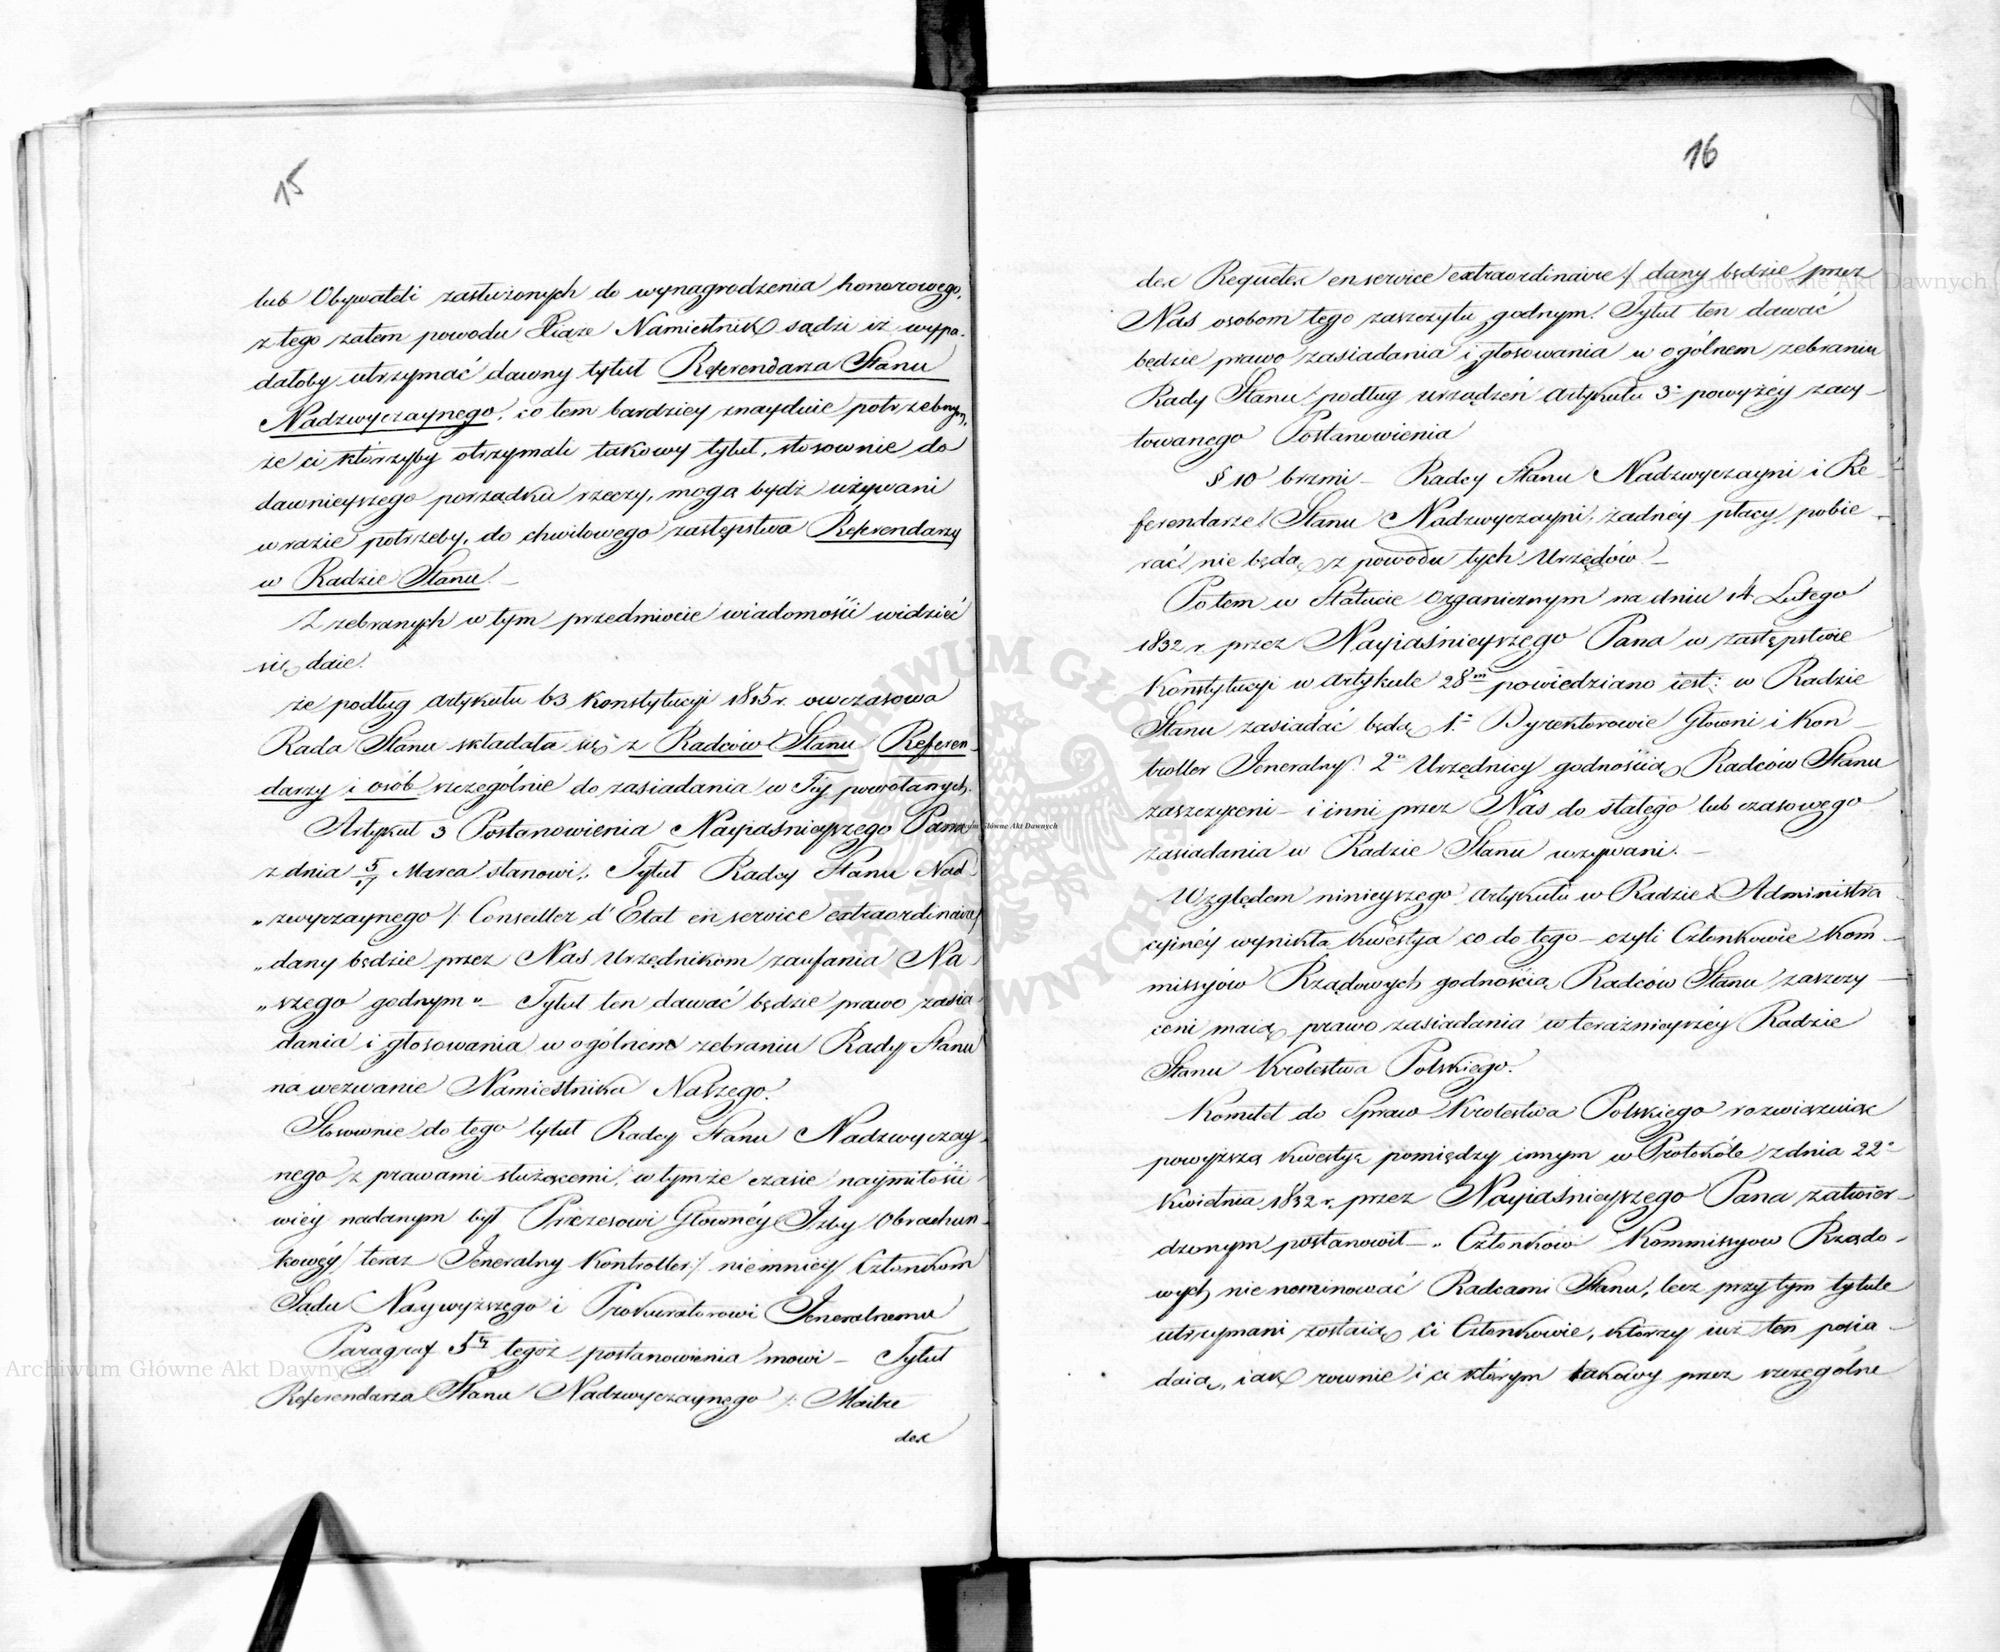 15
lub Obywateli zasłużonych do wynagrodzenia honorowego,
z tego zatem powodu Xiąże Namiestnik sądzi iż wypa-
dałoby utrzymać dawny tytuł Referendarza Stanu
Nadzwyczaynego, co tem bardziey znayduie potrzebnym,
że ci którzyby otrzymali takowy tytuł, stosownie do
dawnieyszego porządku rzeczy, mogą bydź używani
w razie potrzeby, do chwilowego zastępstwa Referendarzy
w Radzie Stanu. –
Z zebranych w tym przedmiocie wiadomości widzieć
się daie.
że podług Artykułu 63 Konstytucyi 1815 r. owczasowa
Rada Stanu składała się z Radców Stanu Referen-
darzy i osób szczególnie do zasiadania w Téy powołanych.
Artykuł 3 Postanowienia Nayiaśnieyszego Pana
z dnia 5/17 Marca stanowi „Tytuł Radcy Stanu Nad-
„zwyczaynego /: Conseiller d'Etat en service extraordinaire/
„dany będzie przez Nas Urzędnikom zaufania Na-
„szego godnym" – Tytuł ten dawać będzie prawo zasia-
dania i głosowania w ogólnem zebraniu Rady Stanu
na wezwanie Namiestnika Naszego.
Stosownie do tego tytuł Radcy Stanu Nadzwyczay-
nego z prawami służącemi, w tymże czasie naymiłości-
wiéy nadanym był Prezesowi Głownéy Izby Obrachun-
kowéy / teraz Jeneralny Kontroller / niemniéy Członkom
Sądu Naywyższego i Prokuratorowi Jeneralnemu
Paragraf 5ty tegoż postanowienia mowi – Tytuł
Referendarza Stanu Nadzwyczaynego /: Maitre
des
16
des Requêtes en service extraordinaire / dany będzie przez
Nas osobom tego zaszczytu godnym. Tytuł ten dawać
będzie prawo zasiadania i głosowania w ogólnem zebraniu
Rady Stanu podług urządzeń Artykułu 3o powyżéy zacy-
towanego Postanowienia
§ 10 brzmi – Radcy Stanu Nadzwyczayni i Re-
ferendarze Stanu Nadzwyczayni, żadnéy płacy pobie-
rać nie będą z powodu tych Urzędów. –
Potem w Statucie Organicznym na dniu 14 Lutego
1832 r. przez Nayiaśnieyszego Pana w zastępstwie
Konstytucyi w Artykule 28m powiedziano iest: w Radzie
Stanu zasiadać będą 1o Dyrektorowie Głowni i Kon-
troller Jeneralny. 2o Urzędnicy godnością Radców Stanu
zaszczyceni – i inni przez Nas do stałego lub czasowego
zasiadania w Radzie Stanu wzywani. –
Względem ninieyszego Artykułu w Radzie Administra-
cyinéy wynikła kwestya co do tego – czyli Członkowie Kom-
missyów Rządowych godnością Radców Stanu zaszczy-
ceni maią prawo zasiadania w teraźnieyszéy Radzie
Stanu Krolestwa Polskiego.
Komitet do Spraw Krolestwa Polskiego rozwiązuiąc
powyższą kwestyą pomiędzy innym w Protokóle z dnia 22o
Kwietnia 1832 r. przez Nayiaśnieyszego Pana zatwier-
dzonym postanowił – „Członków Kommissyow Rządo-
wych nie nominować Radcami Stanu, lecz przy tym tytule
utrzymani zostaią ci Członkowie, którzy iuż ten posia-
daią, iak rownie i ci którym takowy przez szczególne
Archiwum Główne Akt Dawnych
Archiwum Główne Akt Dawnych